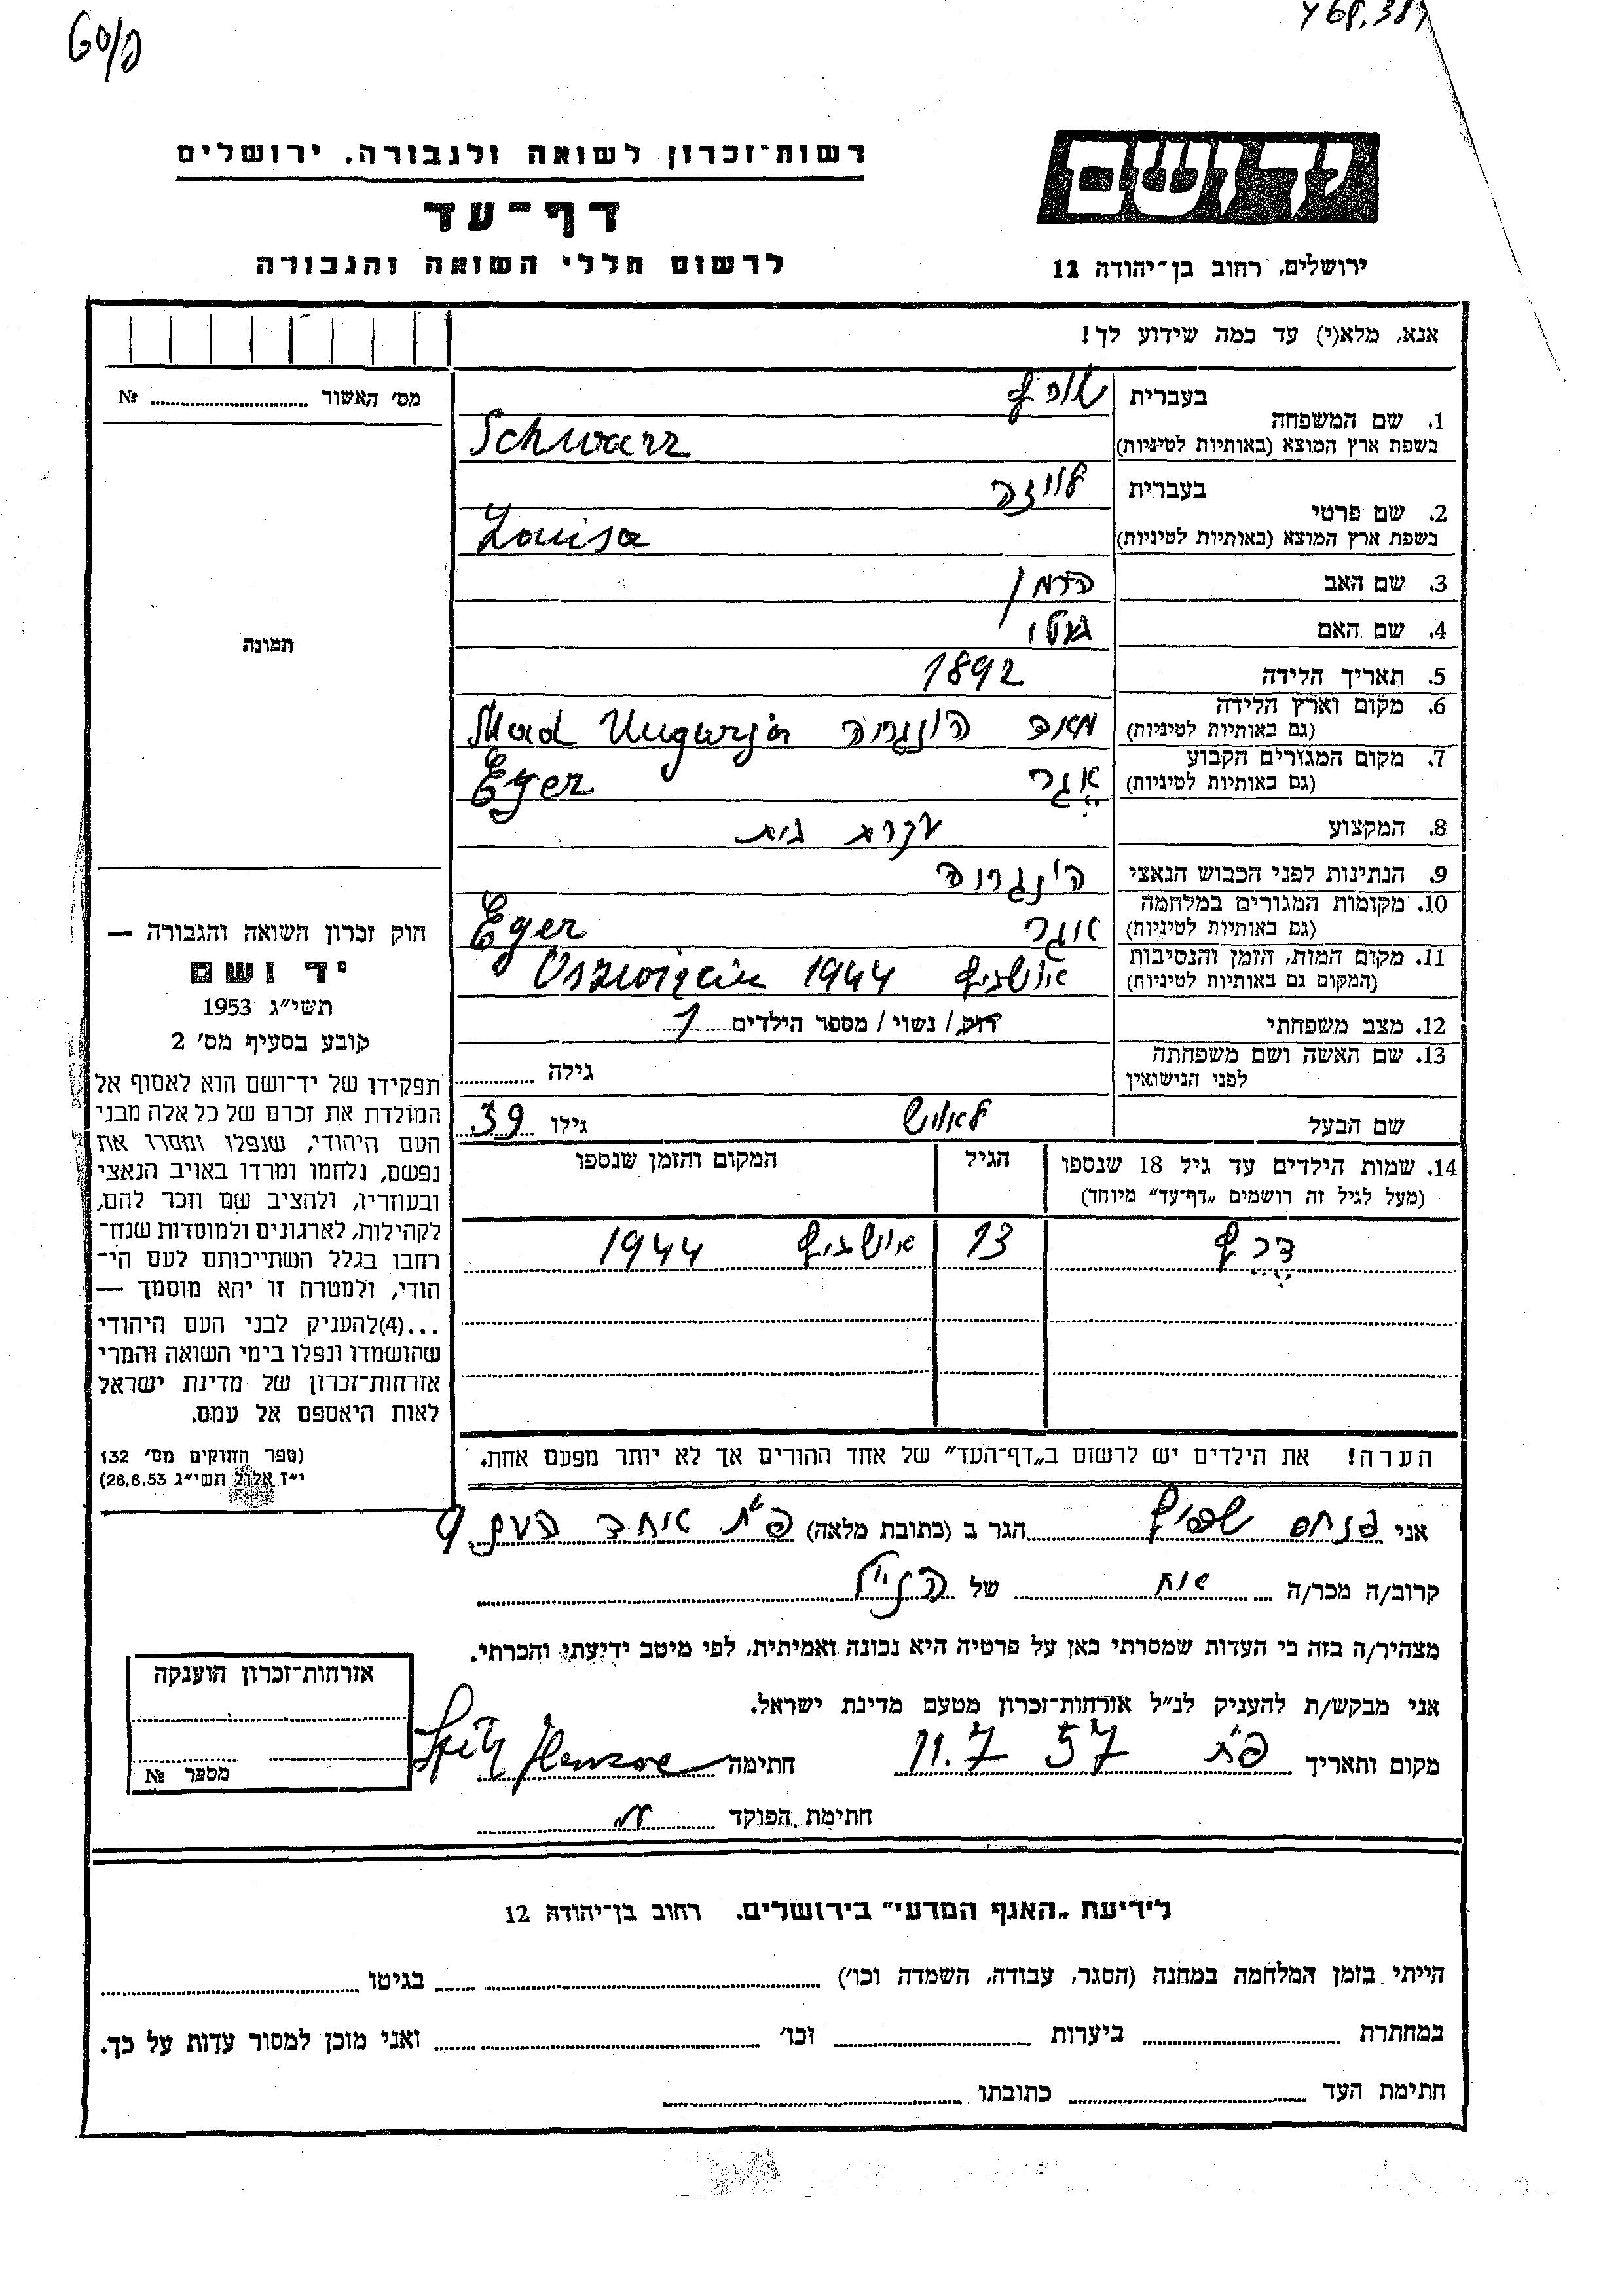 רשות־זכרון לשואה ולגבורה, ירושלים
דף־עד
לרשום חללי השואה והגבורה
יד ושם
ירושלים, רחוב בן־יהודה 12
אנא, מלא(י) עד כמה שידוע לך!
מס׳ האשור № 
בעברית
1. שם המשפחה
בשפת ארץ המוצא (באותיות לטיניות) Schwarz
בעברית לויזה
2. שם פרטי
בשפת ארץ המוצא (באותיות לטיניות) Louisa
3. שם האב הרמן
4. שם האם
5. תאריך הלידה 1892
6. מקום וארץ הלידה
(גם באותיות לטיניות) מאד הונגריה Mad Ungarja
7. מקום המגורים הקבוע
(גם באותיות לטיניות) אגר Eger
8. המקצוע עקרת בית
9. הנתינות לפני הכבוש הנאצי הונגריה
10. מקומות המגורים במלחמה
(גם באותיות לטיניות) אגר Eger
11. מקום המות, הזמן והנסיבות
(המקום גם באותיות לטיניות) אושויץ 1944
12. מצב משפחתי רוק / נשוי / מספר הילדים 1
13. שם האשה ושם משפחתה
לפני הנישואין גילה
שם הבעל לאיוש גילו 39
14. שמות הילדים עד גיל 18 שנספו
(מעל לגיל זה רושמים „דף־עד” מיוחד)
הגיל
המקום והזמן שנספו
13 אושויץ 1944
הערה! את הילדים יש לרשום ב„דף־העד” של אחד ההורים אך לא יותר מפעם אחת.
תמונה
חוק זכרון השואה והגבורה —
יד ושם
תשי״ג 1953
קובע בסעיף מס׳ 2
תפקידו של יד־ושם הוא לאסוף אל
המולדת את זכרם של כל אלה מבני
העם היהודי, שנפלו ומסרו את
נפשם, נלחמו ומרדו באויב הנאצי
ובעוזריו, ולהציב שם וזכר להם,
לקהילות, לארגונים ולמוסדות שנח־
רחבו בגלל השתייכותם לעם הי־
הודי, ולמטרה זו יהא מוסמך —
...(4)להעניק לבני העם היהודי
שהושמדו ונפלו בימי השואה והמרי
אזרחות־זכרון של מדינת ישראל
לאות היאספם אל עמם.
(ספר החוקים מס׳ 132
י״ז אלול תשי״ג 28.8.53)
אני פנחס שפיץ הגר ב (כתובת מלאה) פ״ת אחד העם 9
קרוב/ה מכר/ה אח של הנ״ל
מצהיר/ה בזה כי העדות שמסרתי כאן על פרטיה היא נכונה ואמיתית, לפי מיטב ידיעתי והכרתי.
אני מבקש/ת להעניק לנ״ל אזרחות־זכרון מטעם מדינת ישראל.
מקום ותאריך פ״ת 11.7 57 חתימה
חתימת הפוקד
אזרחות־זכרון הוענקה
מספר №
לידיעת „האגף המדעי” בירושלים, רחוב בן־יהודה 12
הייתי בזמן המלחמה במחנה (הסגר, עבודה, השמדה וכו׳) בגיטו
במחתרת ביערות וכו׳ ואני מוכן למסור עדות על כך.
חתימת העד כתובתו